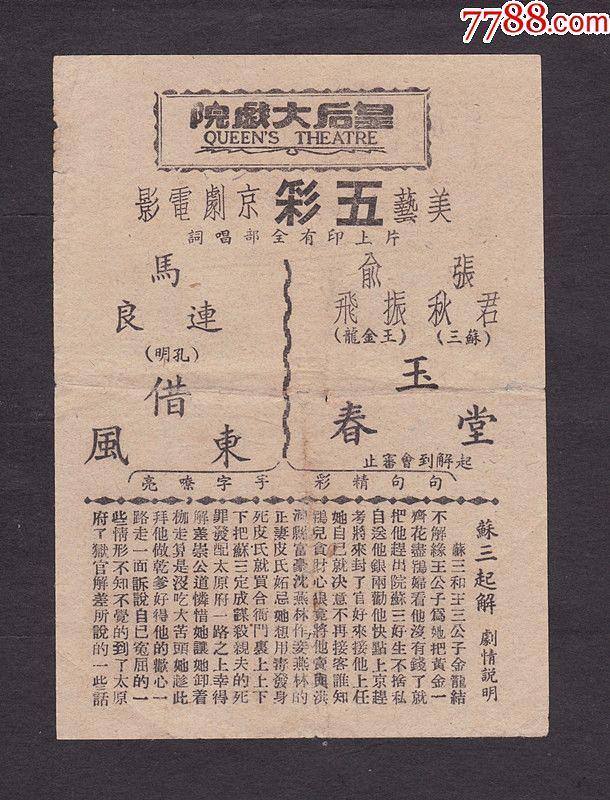 7788.com
皇后大戲院
QUEEN'S THEATRE
美藝五彩京劇電影
片上印有全部唱詞
張君秋
(蘇三)
俞振飛
(王金龍)
玉堂春
起解到會審止
句句精彩
馬連良
(孔明)
借東風
字字嘹亮
蘇三起解 劇情說明
蘇三和王三公子金龍結
不解緣王公子爲她把黃金一
齊花盡鴇婦看他沒有錢了就
把他趕出院蘇三好生不捨私
自送他銀兩勸他快點上京趕
考將來封了官好來接他上任
她自己就決意不再接客誰知
鴇兒貪財心狠竟將他賣與洪
洞縣富豪沈燕林作妾燕林的
正妻皮氏妬忌她想用毒發身
死皮氏就買合衙門裏上上下
下把蘇三定成謀殺親夫的死
罪發配太原府一路之上幸得
解差崇公道憐惜她讓她卸着
枷走算是沒吃大苦頭她趁此
拜他做乾爹好得他的歡心一
路走一面訴說自己寃屈的一
些情形不知不覺的到了太原
府了獄官解差所說的一些話